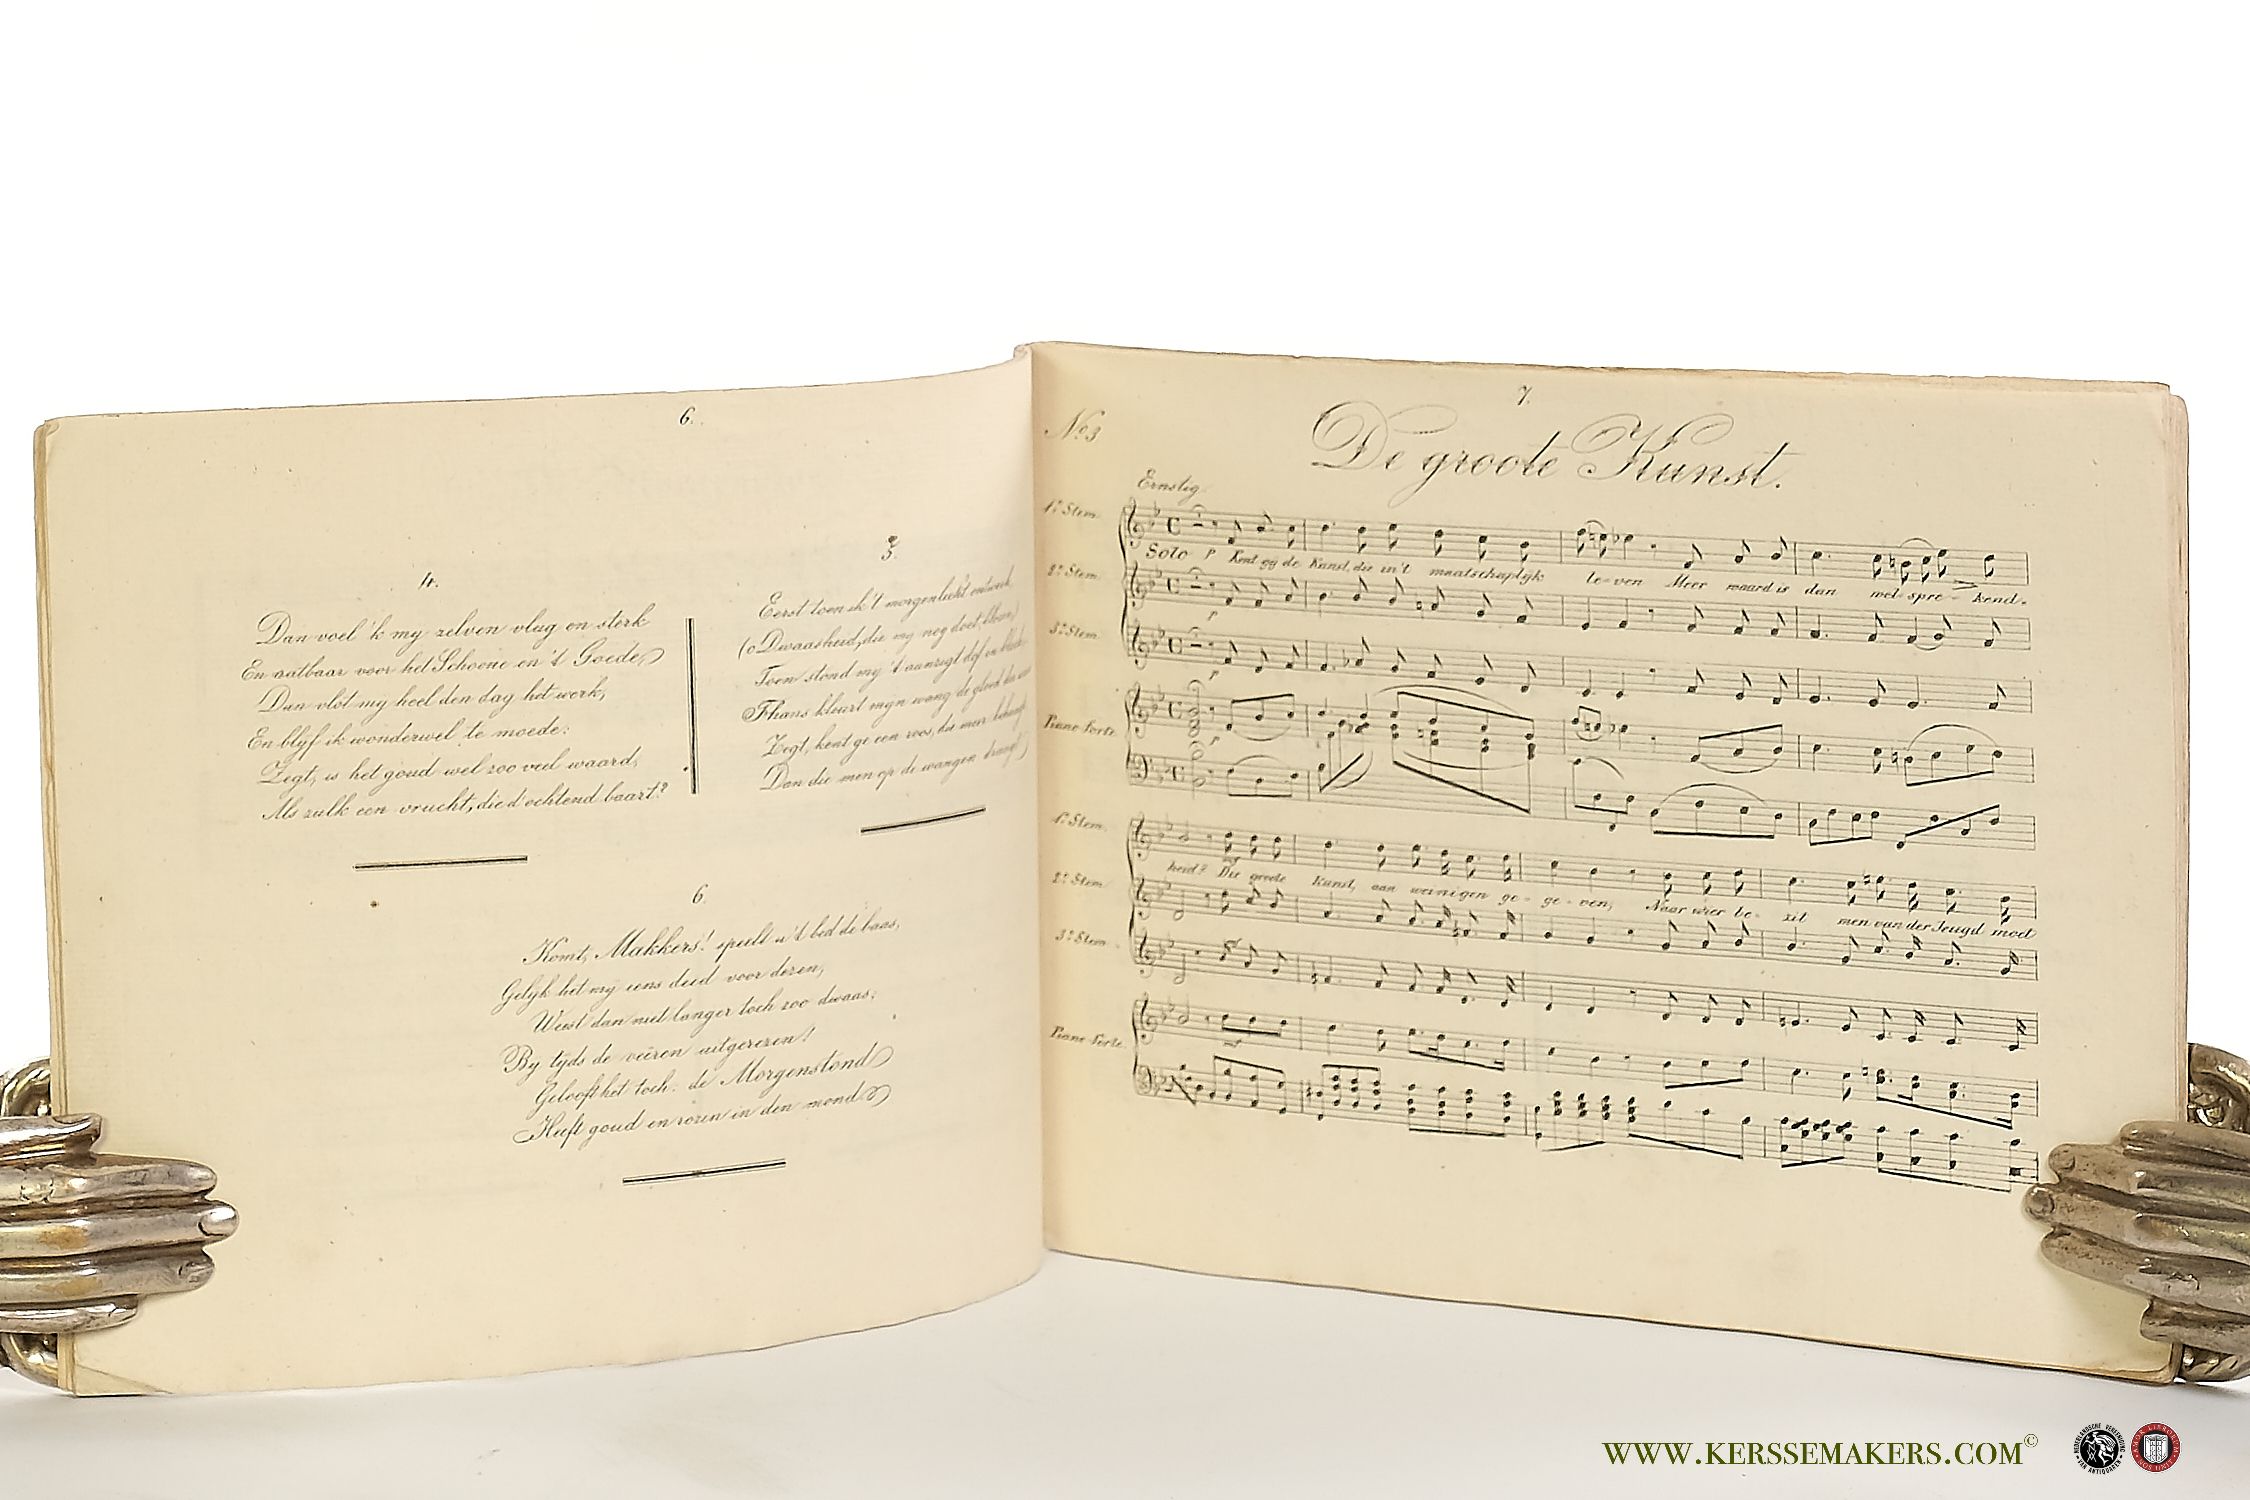 6.
4.
Dan voel 'k my zelven vlug en sterk
En vatbaar voor het Schoone en 't Goede,
Dan vlot my heel den dag het werk,
En blyf ik wonderwel te moede:
Zegt, is het goud wel zoo veel waard,
Als zulk een vrucht, die d'ochtend baart?
5.
Eerst toen ik 't morgenlicht ontweek,
(o Dwaasheid, die my nog doet blozen)
Toen stond my 't aanzigt dof en bleek
Thans kleurt mijn wang de gloed der
Zegt, kent ge een roos, die meer behaagt
Dan die men op de wangen draagt?
6.
Komt, Makkers! speelt u 't bed de baas,
Gelijk het my eens deed voor dezen,
Weest dan niet langer toch zoo dwaas;
By tyds de veêren uitgerezen!
Gelooft het toch: de Morgenstond
Heeft goud en rozen in den mond
7.
No 3
De groote Kunst.
Ernstig.
1e Stem.
Solo P Kent gy de Kunst, die in 't maatschaplyk le-ven Meer waard is dan wel-spre-kend-
2e Stem.
P
3e Stem.
P
Piano-Forte.
P
1e Stem.
heid? Die groote Kunst, aan weinigen ge-ge-ven, Naar wier be-zit men van der Jeugd moet
2e Stem
3e Stem
Piano-Forte.
WWW.KERSSEMAKERS.COM©
NEDERLANDSCHE VEREENIGING VAN ANTIQUAREN
AMOR LIBRORUM NOS UNIT